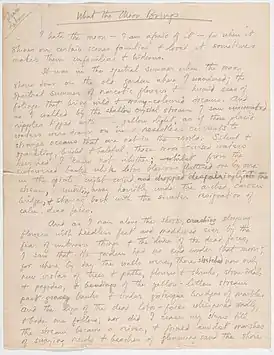 What the Moon Brings
I hate the moon — I am afraid of it — for when it
shines on certain scenes familiar & loved it sometimes
makes them unfamiliar & hideous.
It was in the spectral summer when the moon
shone down on the old garden where I wandered; the
spectral summer of narcotic flowers & humid seas of
foliage that bring wild & many-coloured dreams. And
as I walked by the shallow crystal stream I saw unwonted
ripples tipped with yellow light, as if those placid
waters were drawn on in resistless currents to
strange oceans that are not in the world. Silent &
sparkling, bright & baleful, those moon-cursed waters
hurried I knew not whither; whilst from the
embowered banks white lotos blossoms fluttered one by one
in the opiate night-wind and dropped despairingly into the
stream, swirling away horribly under the arched, carven
bridge, & staring back with the sinister resignation of
calm, dead faces.
And as I ran along the shore, crushing sleeping
flowers with heedless feet and maddened ever by the
fear of unknown things & the lure of the dead faces,
I saw that the garden had no end under that moon;
for where by day the walls were, there stretched now only
new vistas of trees & paths, flowers & shrubs, stone idols
& pagodas, & bendings of the yellow-litten stream
past grassy banks & under grotesque bridges of marble.
And the lips of the dead lotos-faces whispered sadly,
& bade me follow, nor did I cease my steps till
the stream became a river, & joined amidst marshes
of swaying reeds & beaches of gleaming sand the shore